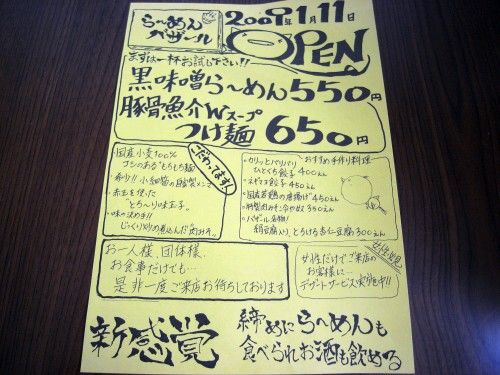 らーめん
バザール
2009年1月11日
OPEN
まずは一杯お試し下さい!!
黒味噌らーめん 550円
豚骨魚介Wスープ
つけ麺 650円
こだわってます!
・国産小麦100%
コシのある"もちもち麺"
・希少!! 小細筍の自家製メンマ
・赤玉を使った
"とろ〜り味玉子"
・味の決め手!!
じっくり炒め煮込んだ肉みそ。
おすすめ手作り料理
・カリッとパリパリ
ひとくち餃子 400えん
・ネギマヨ餃子 450えん
・国産若鶏の唐揚げ 450えん
・特製肉みそ冷や奴 350えん
・バザール名物!
絹豆腐入り、とろける杏仁豆腐 300えん
お一人様、団体様、
お食事だけでも…
是非一度ご来店お待ちしております
女性必見
女性だけでご来店の
お客様に…
デザートサービス実施中!!
新感覚
締めにらーめんも
食べられお酒も飲める